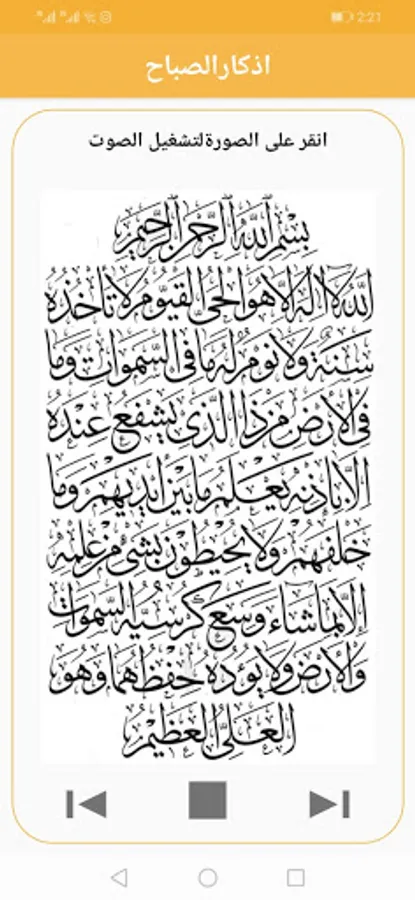 2:21
اذكارالصباح
انقر على الصورةلتشغيل الصوت
بِسْمِ ٱللَّهِ ٱلرَّحْمَٰنِ ٱلرَّحِيمِ
اللهُ لَا اِلٰهَ اِلَّا هُوَ الْحَيُّ الْقَيُّومُ لَا تَأْخُذُهُ
سِنَةٌ وَلَا نَوْمٌ لَهُ مَا فِي السَّمٰوَاتِ وَمَا
فِي الْأَرْضِ مَنْ ذَا الَّذِي يَشْفَعُ عِنْدَهُ
اِلَّا بِاِذْنِهِ يَعْلَمُ مَا بَيْنَ اَيْدِيهِمْ وَمَا
خَلْفَهُمْ وَلَا يُحِيطُونَ بِشَيْءٍ مِنْ عِلْمِهِ
اِلَّا بِمَا شَاءَ وَسِعَ كُرْسِيُّهُ السَّمٰوَاتِ
وَالْأَرْضَ وَلَا يَؤُدُهُ حِفْظُهُمَا وَهُوَ
الْعَلِيُّ الْعَظِيمُ